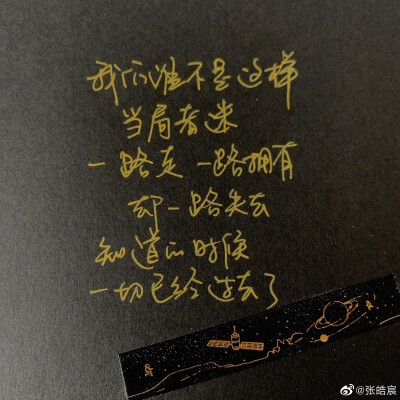 我们谁不是这样
当局者迷
一路走 一路拥有
却一路失去
知道的时候
一切已经过去了
@张皓宸